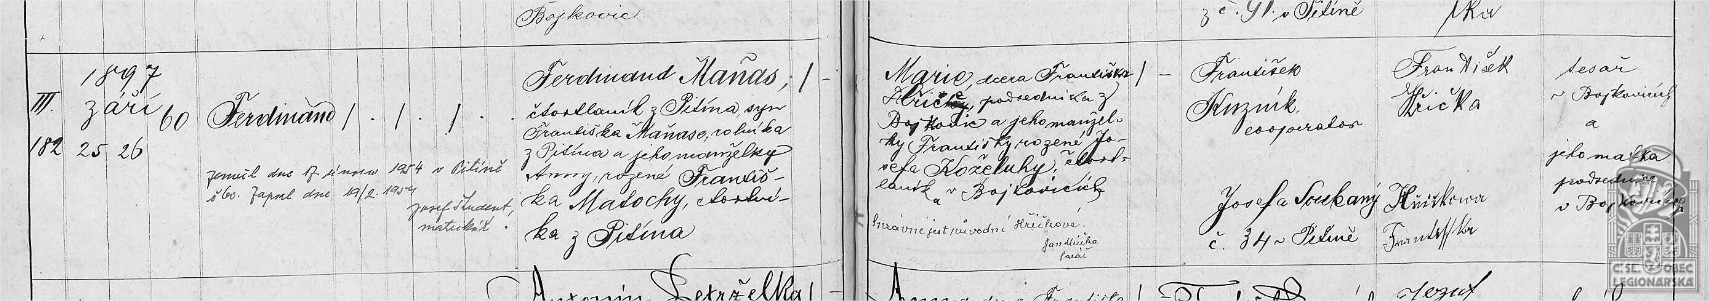 Bojkovic
z č. 91. v Pitíně
III.
182
1897
září
25 26
60
Ferdinand
zemřel dne 17. února 1954 v Pitíně
č. 60. Zapsal dne 19/2. 1954
Josef Student,
matrikář.
Ferdinand Maňas,
čtvrtlaník z Pitína, syn
Františka Maňase, rolníka
z Pitína a jeho manželky
Anny, rozené Františ-
ka Matochy,
ka z Pitína
Marie, dcera Františka
podsedníka z
Bojkovic a jeho manžel-
ky Františky, rozené Jo-
sefa Koželuhy, čtvrt-
laník v Bojkovicích
Správně jest původní Hřičková.
Jan Hřička
farář
František
Kuzník
cooperator
Josefa Soukaný
č. 34 v Pitíně
František
Hřička
Františka
tesař
v Bojkovicích
a
jeho matka
podsednice
v Bojkovicích
Antonín
František
Josef
ČSL. OBEC
LEGIONÁŘSKÁ